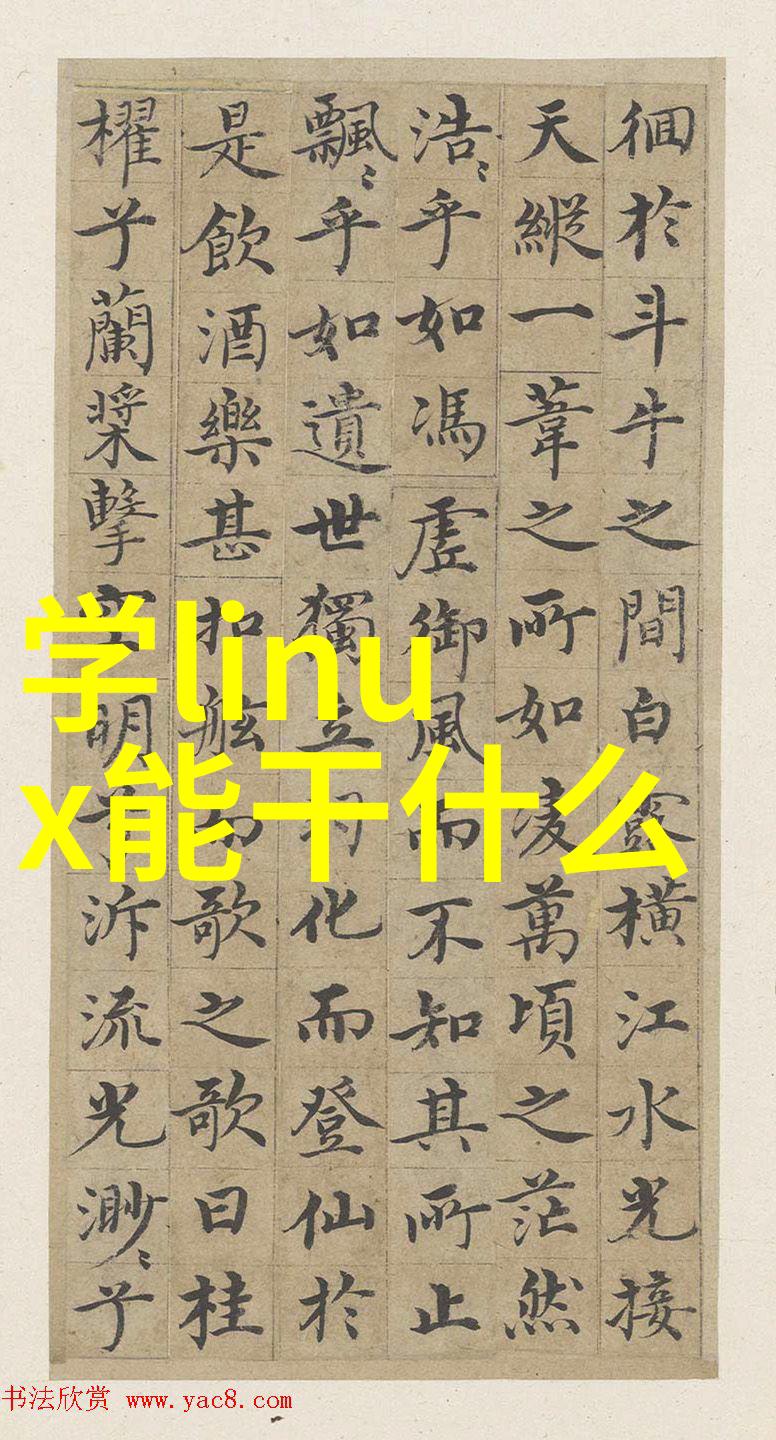 徊於斗牛之間白露橫江水光接
天縱一葦之所如淩萬頃之茫然
浩〻乎如馮虛御風而不知其所止
飄〻乎如遺世獨立羽化而登仙於
是飲酒樂甚扣舷而歌之歌曰桂
櫂兮蘭槳擊空明兮泝流光渺〻兮
学linu
x能干什么
书法欣赏 www.yac8.com